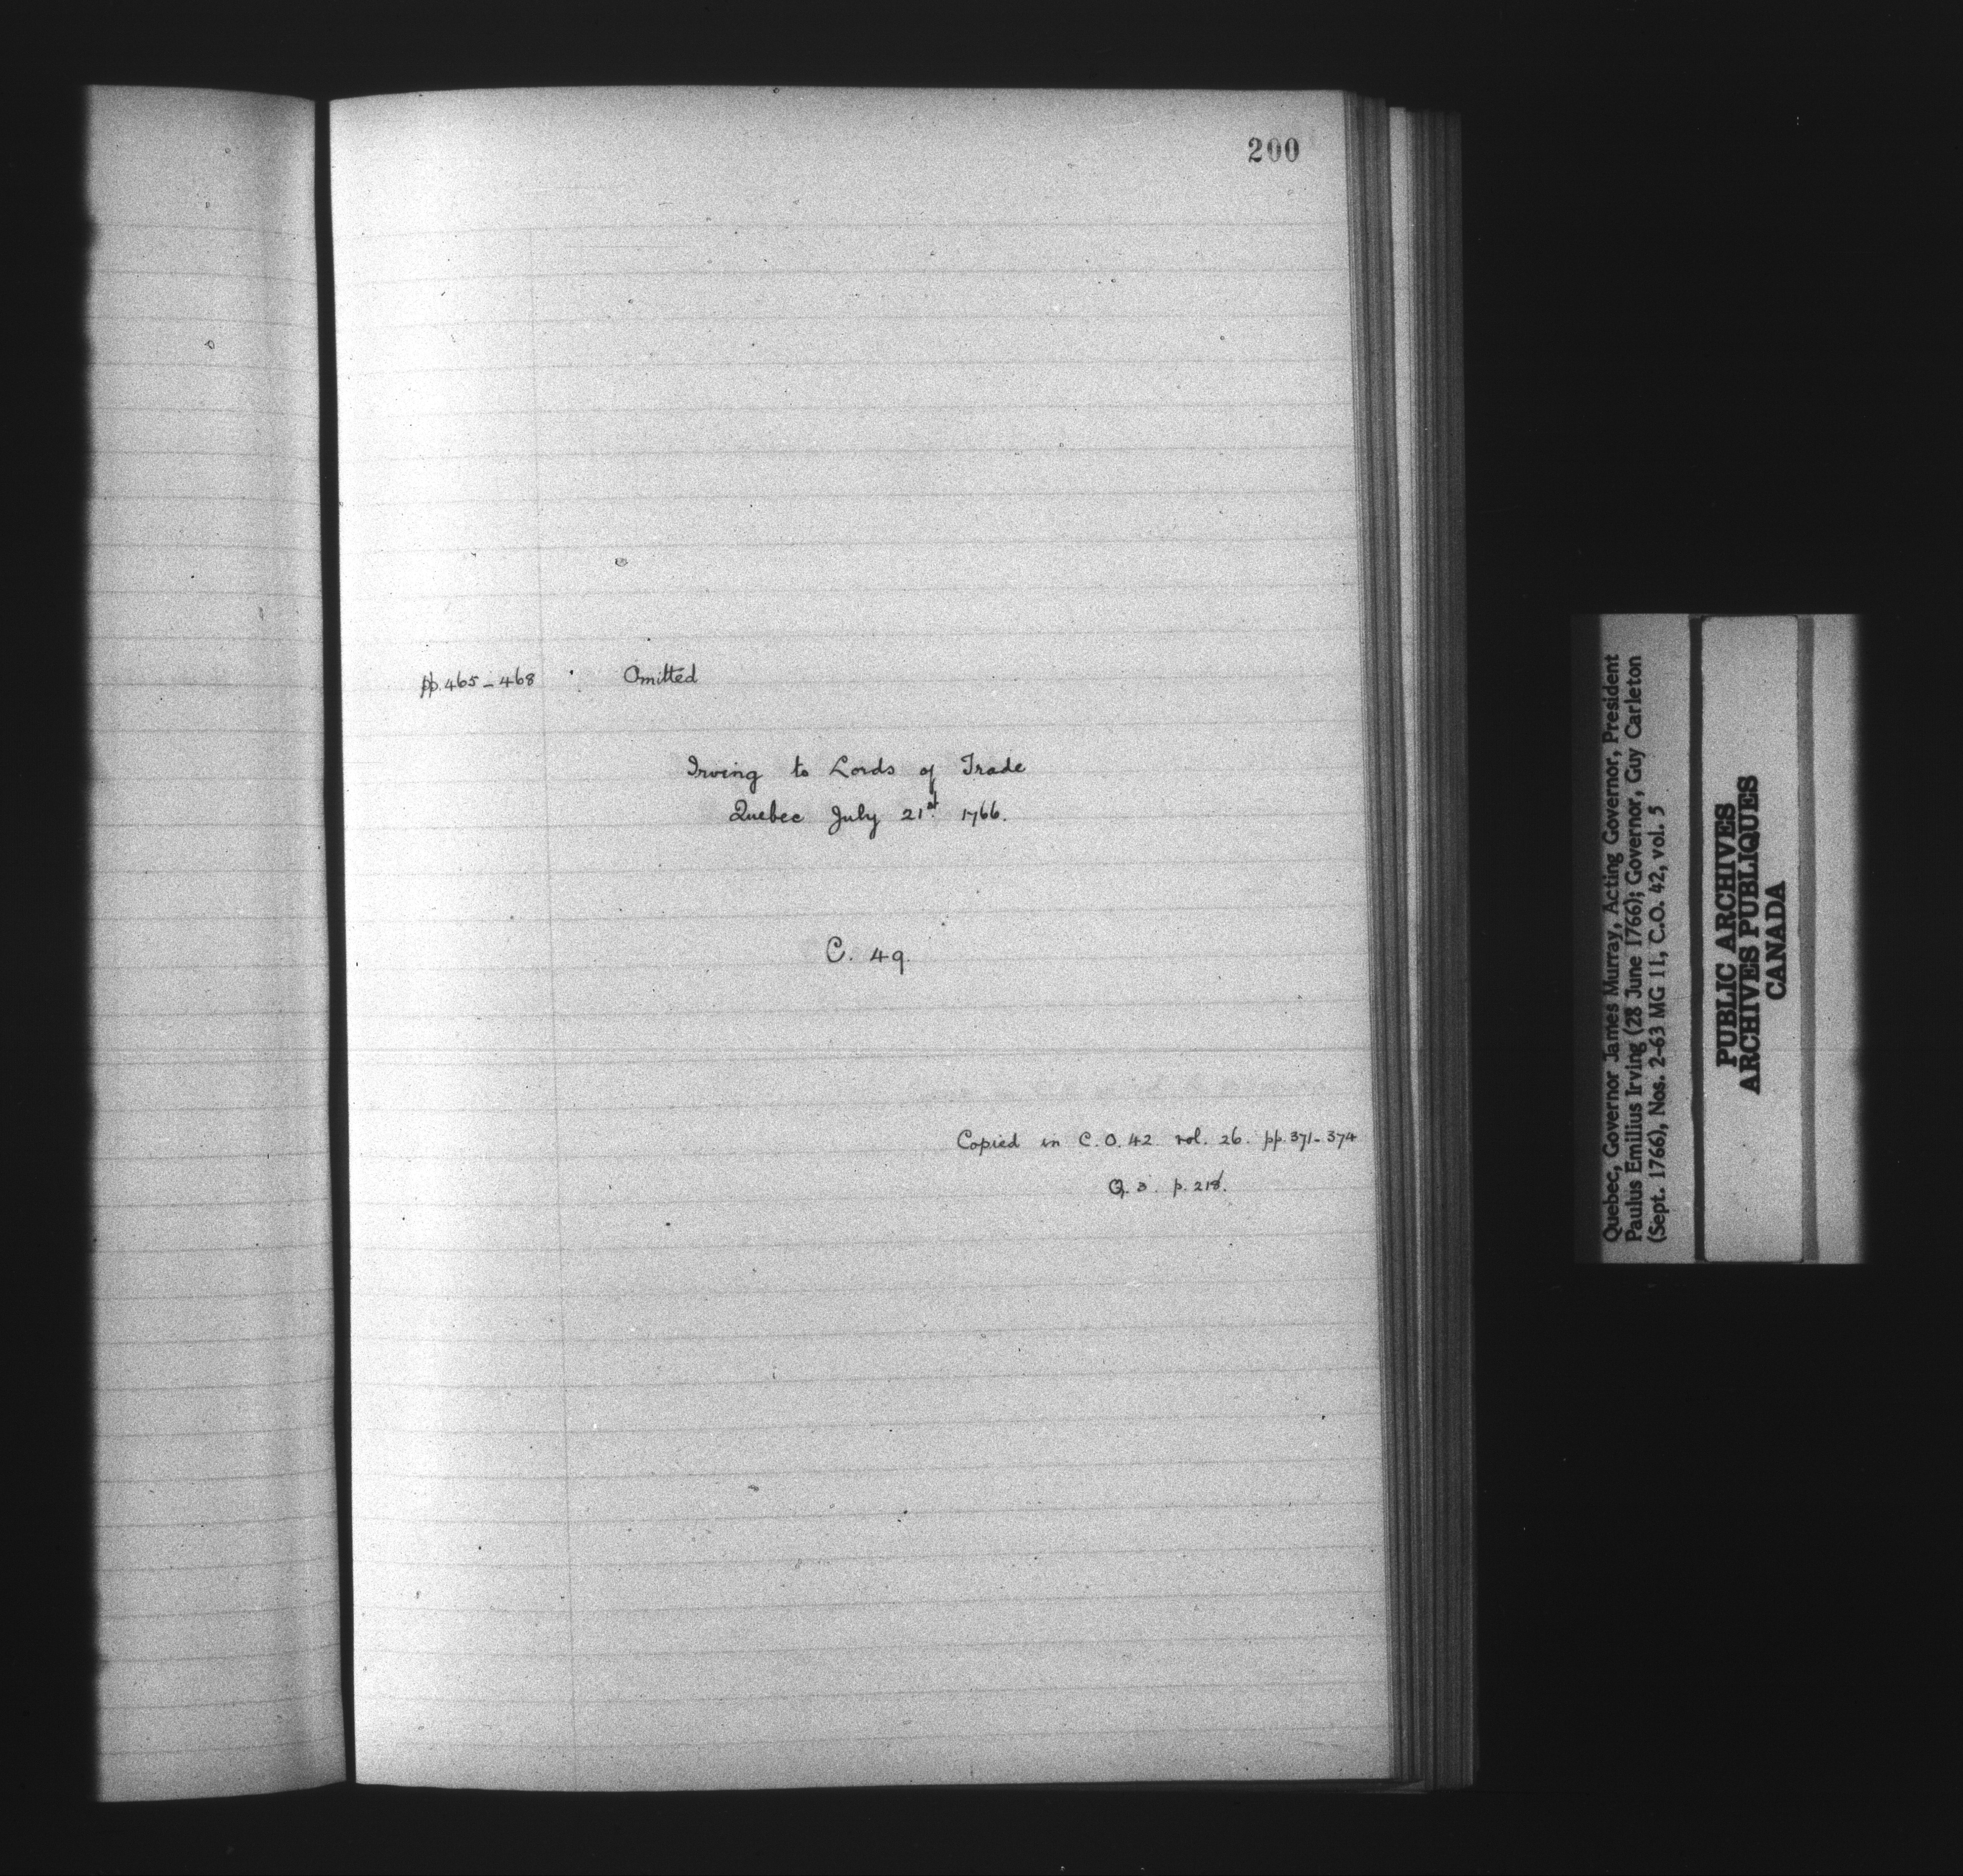 200
pp. 465 - 468 Omitted
Irving to Lords of Trade
Quebec July 21st. 1766.
C. 49.
Copied in C.O. 42 vol. 26. pp. 371 - 374
Q. 3. p. 218.
Quebec, Governor James Murray, Acting Governor, President
Paulus Emilius Irving (28 June 1766); Governor, Guy Carleton
(Sept. 1766), Nos. 2-63 MG 11, C.O. 42, vol. 5
PUBLIC ARCHIVES
ARCHIVES PUBLIQUES
CANADA